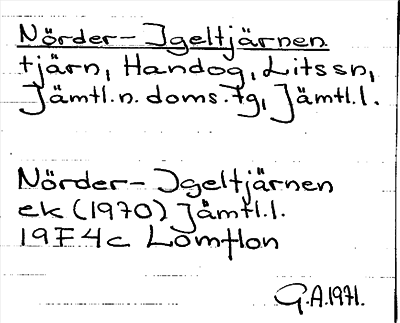 Nörder-Igeltjärnen
tjärn, Handog, Lits sn,
Jämtl.n. doms.tg, Jämtl.l.
Nörder-Igeltjärnen
ek (1970) Jämtl.l.
19F4c Lomtlon
G.A.1971.